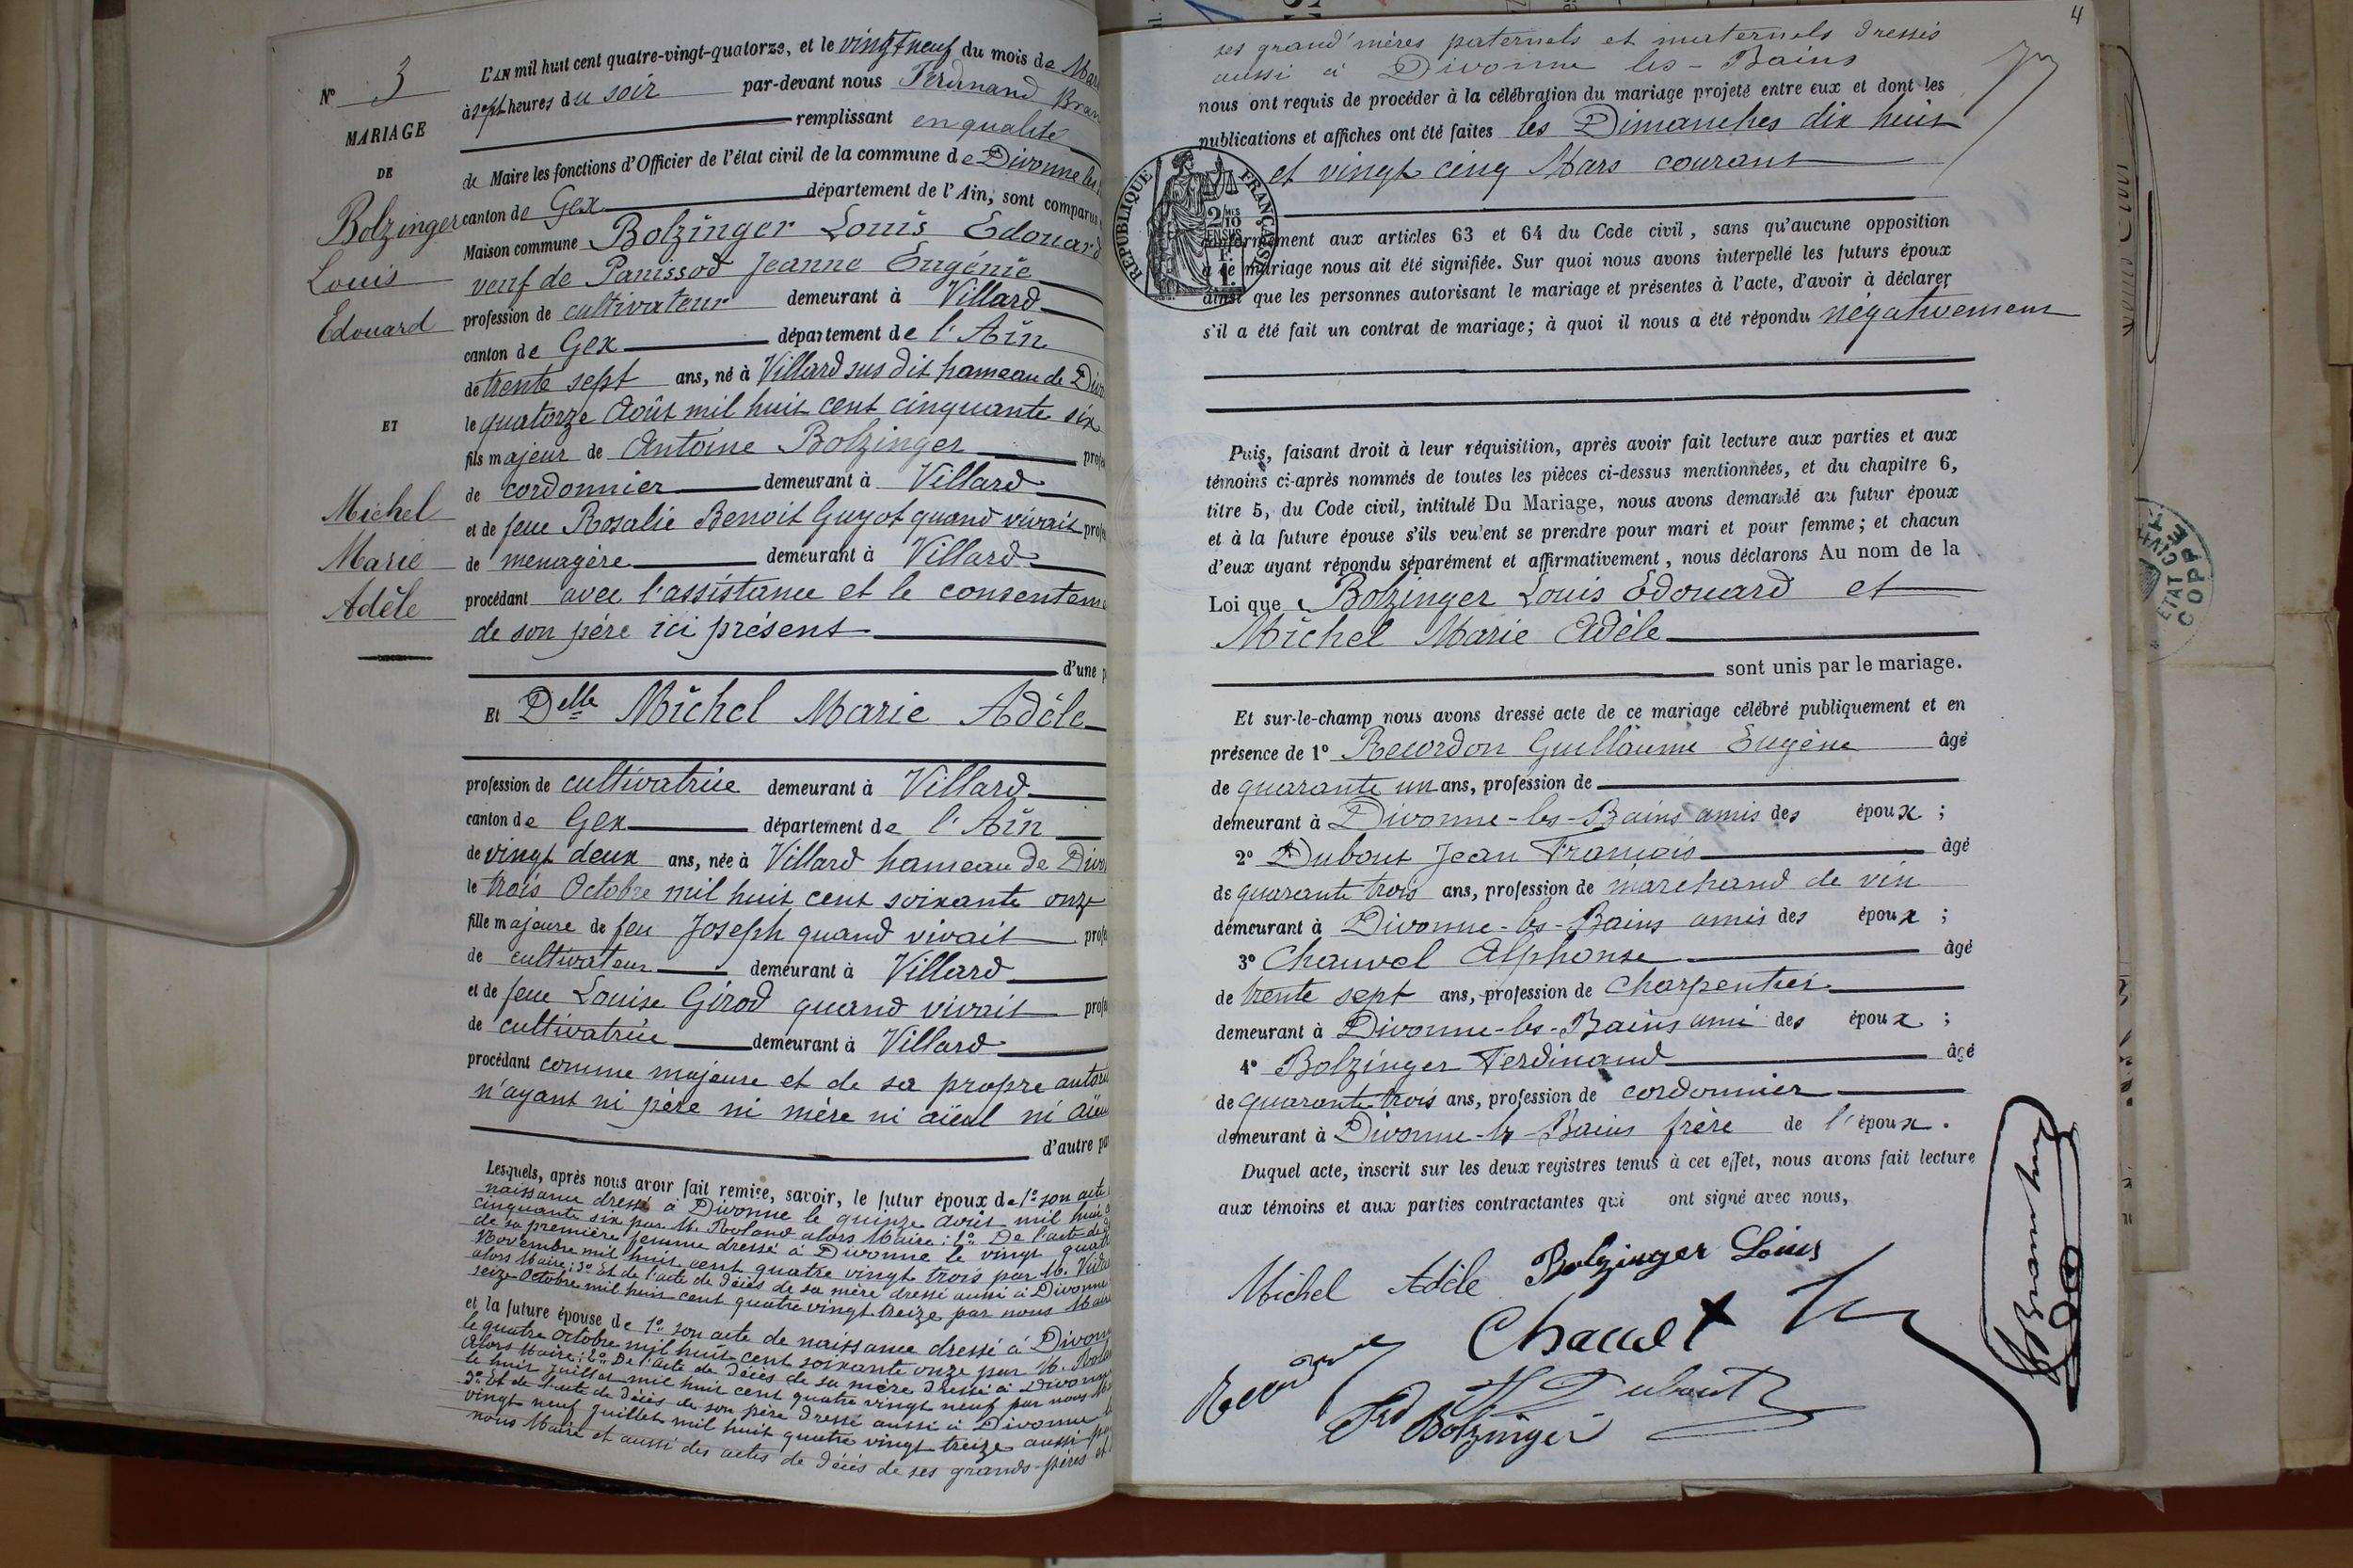 N° 3
MARIAGE
DE
Bolzinger
Louis
Edouard
ET
Michel
Marie
Adèle
L'AN mil huit cent quatre-vingt-quatorze, et le vingt neuf du mois de Mar
à sept heures du soir par-devant nous Ferdinand Bran
remplissant en qualité
de Maire les fonctions d'Officier de l'état civil de la commune de Divonne les
canton de Gex département de l'Ain, sont comparus
Maison commune Bolzinger Louis Edouard
veuf de Panissod Jeanne Eugénie
profession de cultivateur demeurant à Villard
canton de Gex département de l'Ain
de trente sept ans, né à Villard sus dit hameau de Divo
le quatorze Août mil huit cent cinquante six
fils majeur de Antoine Bolzinger profe
de cordonnier demeurant à Villard
et de feue Rosalie Benoit Guyot quand vivait profe
de menagère demeurant à Villard
procédant avec l'assistance et le consenteme
de son père ici présent
d'une p
Et Delle Michel Marie Adèle
profession de cultivatrice demeurant à Villard
canton de Gex département de l'Ain
de vingt deux ans, née à Villard hameau de Divo
le trois Octobre mil huit cent soixante onze
fille majeure de feu Joseph quand vivait profe
de cultivateur demeurant à Villard
et de feue Louise Girod quand vivait profe
de cultivatrice demeurant à Villard
procédant comme majeure et de sa propre autori
n'ayant ni père ni mère ni aïeul ni aïeu
d'autre par
Lesquels, après nous avoir fait remise, savoir, le futur époux de 1° son acte
naissance dressé à Divonne le quinze Août mil huit c
cinquante six par M. Roland alors Maire: 2° De l'acte de d
de sa première femme dressé à Divonne le vingt quatr
Novembre mil huit cent quatre vingt trois par M. Vida
alors Maire; 3° Et de l'acte de décès de sa mère dressé aussi à Divonne
seize Octobre mil huit cent quatre vingt treize par nous Maire
et la future épouse de 1° son acte de naissance dressé à Divonne
le quatre Octobre mil huit cent soixante onze par M. Rolan
Alors Maire: 2° De l'acte de décès de sa mère dressé à Divonne
le huit juillet mil huit cent quatre vingt neuf par nous Ma
3° Et de l'acte de décès de son père dressé aussi à Divonne le
vingt neuf juillet mil huit quatre vingt treize aussi par
nous Maire et aussi des actes de décès de ses grands-pères et
4
ses grand'mères paternels et maternels dressés
aussi à Divonne les-Bains
nous ont requis de procéder à la célébration du mariage projeté entre eux et dont les
publications et affiches ont été faites les Dimanches dix huit
et vingt cinq Mars courant
RÉPUBLIQUE FRANÇAISE
2/10 EN SUS
conformément aux articles 63 et 64 du Code civil, sans qu'aucune opposition
à ce mariage nous ait été signifiée. Sur quoi nous avons interpellé les futurs époux
ainsi que les personnes autorisant le mariage et présentes à l'acte, d'avoir à déclarer
s'il a été fait un contrat de mariage; à quoi il nous a été répondu négativement
Puis, faisant droit à leur réquisition, après avoir fait lecture aux parties et aux
témoins ci-après nommés de toutes les pièces ci-dessus mentionnées, et du chapitre 6,
titre 5, du Code civil, intitulé Du Mariage, nous avons demandé au futur époux
et à la future épouse s'ils veulent se prendre pour mari et pour femme; et chacun
d'eux ayant répondu séparément et affirmativement, nous déclarons Au nom de la
Loi que Bolzinger Louis Edouard et
Michel Marie Adèle
sont unis par le mariage.
Et sur-le-champ nous avons dressé acte de ce mariage célébré publiquement et en
présence de 1° Recordon Guillaume Eugène âgé
de quarante un ans, profession de
demeurant à Divonne-les-Bains amis des époux;
2° Dubout Jean François âgé
de quarante trois ans, profession de marchand de vin
demeurant à Divonne-les-Bains amis des époux;
3° Chauvel Alphonse âgé
de trente sept ans, profession de Charpentier
demeurant à Divonne-les-Bains ami des époux;
4° Bolzinger Ferdinand âgé
de quarante trois ans, profession de cordonnier
demeurant à Divonne-les-Bains frère de l'époux.
Duquel acte, inscrit sur les deux registres tenus à cet effet, nous avons fait lecture
aux témoins et aux parties contractantes qui ont signé avec nous,
Michel Adèle Bolzinger Louis
Chauvet
Recordon
Dubout
Frd Bolzinger
ETAT CIVIL
COPPET